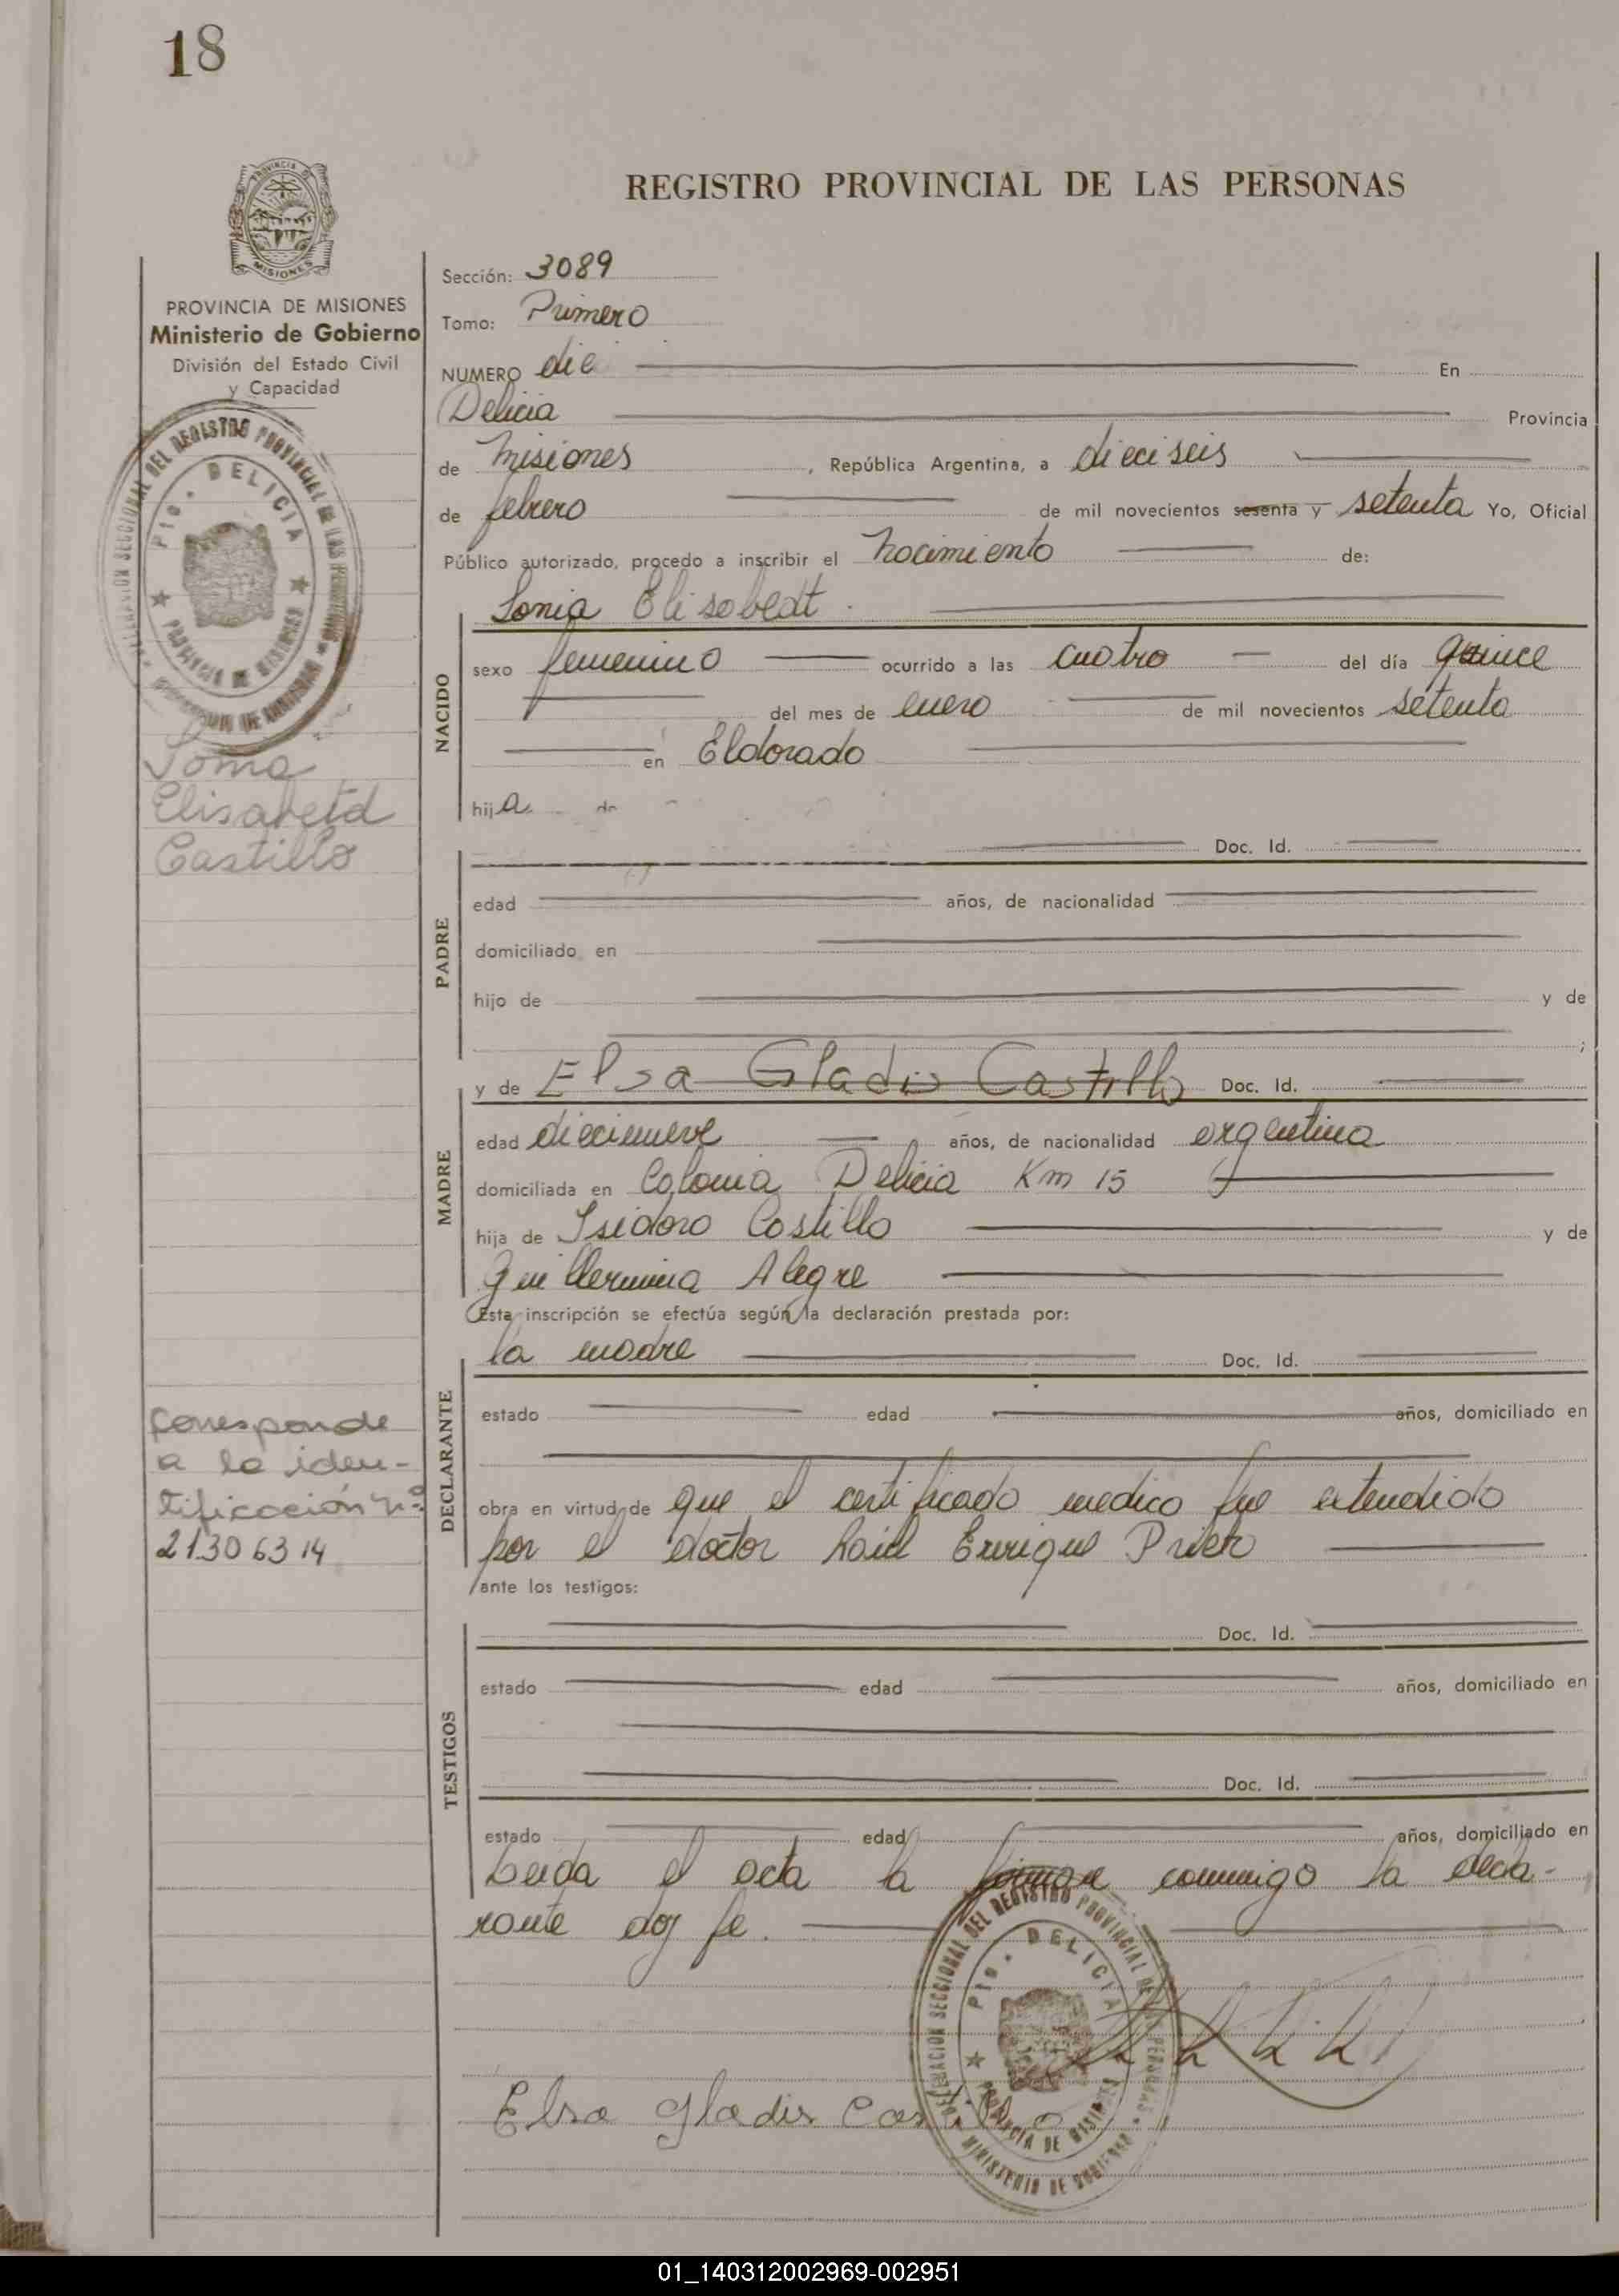 18
REGISTRO PROVINCIAL DE LAS PERSONAS
PROVINCIA DE MISIONES
Ministerio de Gobierno
División del Estado Civil
y Capacidad
DELEGACION SECCIONAL DEL REGISTRO PROVINCIAL DE LAS PERSONAS
Pto. DELICIA
PROVINCIA DE MISIONES
MINISTERIO DE GOBIERNO
Sonia
Elisabetd
Castillo
Corresponde
a la iden-
tificación nº
21306314
Sección: 3089
Tomo: Primero
NUMERO die En
Delicia Provincia
de Misiones , República Argentina, a dieciseis
de febrero de mil novecientos sesenta y setenta Yo, Oficial
Público autorizado, procedo a inscribir el nacimiento de:
Sonia Elisabedt.
NACIDO
sexo femenino ocurrido a las cuatro del día quince
del mes de enero de mil novecientos setenta
en Eldorado
hija de
Doc. Id.
PADRE
edad años, de nacionalidad
domiciliado en
hijo de y de
;
y de Elsa Gladis Castillo Doc. Id.
MADRE
edad diecinueve años, de nacionalidad argentina
domiciliada en Colonia Delicia Km 15
hija de Isidoro Castillo y de
Guillermina Alegre
Esta inscripción se efectúa según la declaración prestada por:
la madre Doc. Id.
DECLARANTE
estado edad años, domiciliado en
obra en virtud de que el certificado medico fue atendido
por el doctor Raúl Enrique
ante los testigos:
Doc. Id.
TESTIGOS
estado edad años, domiciliado en
Doc. Id.
estado edad años, domiciliado en
Leida el acta la conmigo la decla-
rante doy fe.
DELEGACION SECCIONAL DEL REGISTRO PROVINCIAL DE LAS PERSONAS
Pto. DELICIA
PROVINCIA DE MISIONES
MINISTERIO DE GOBIERNO
Elsa Gladis Castillo
01_140312002969-002951